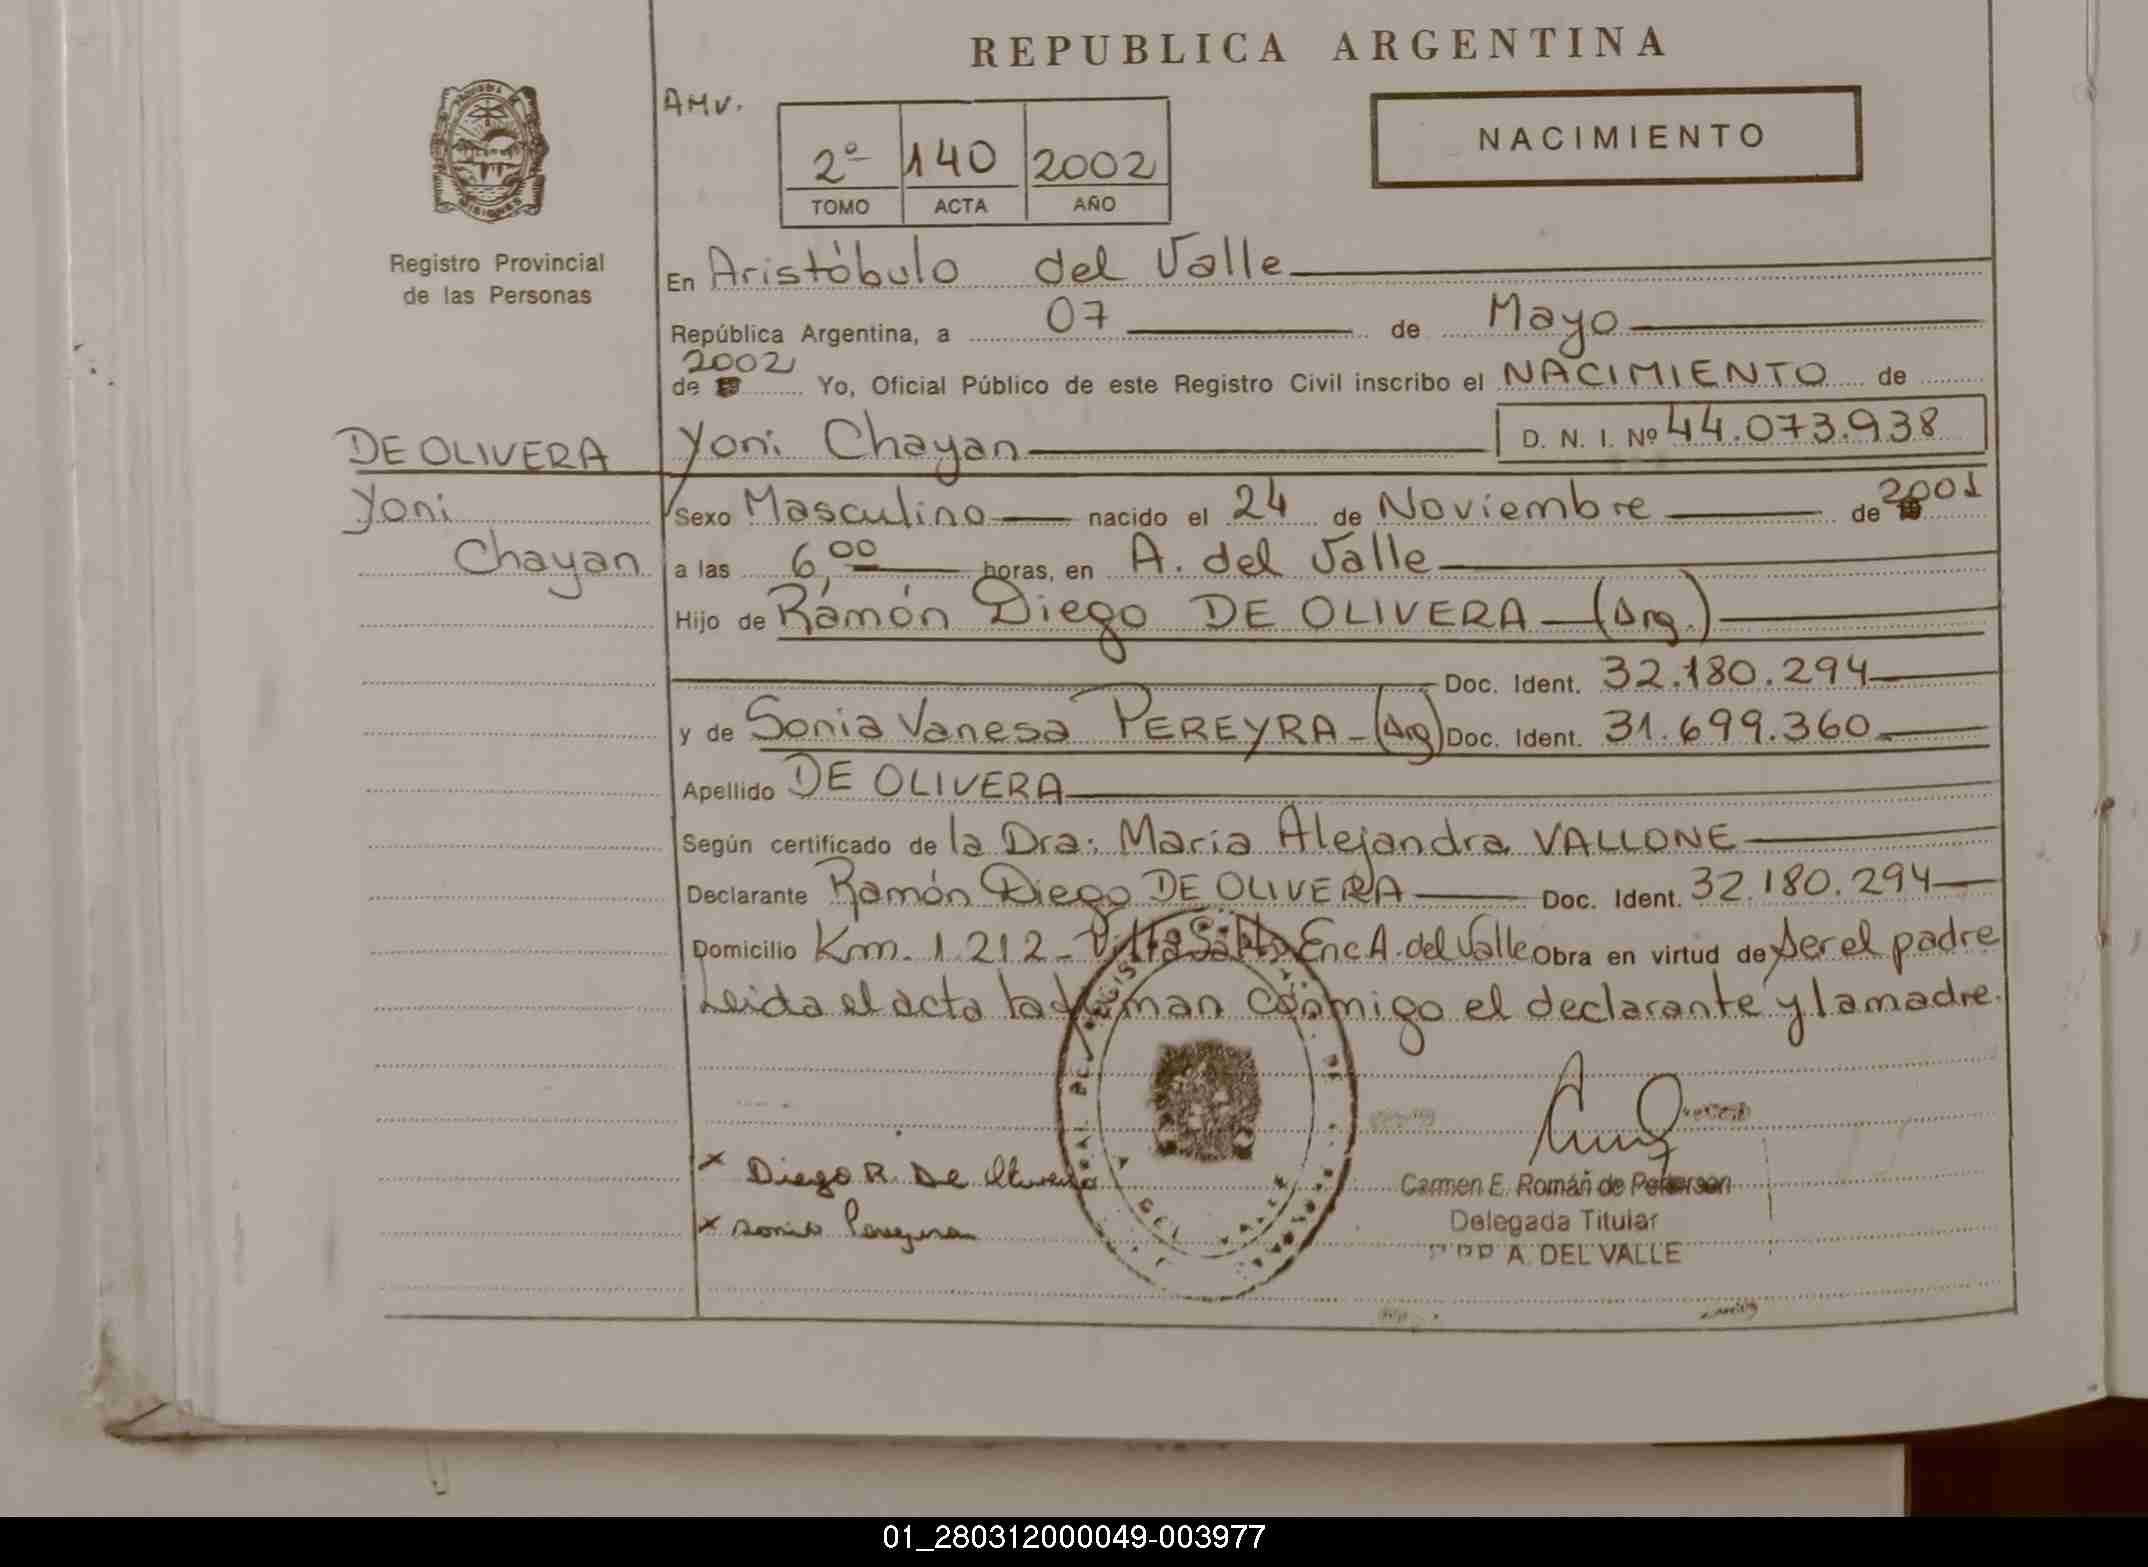 REPUBLICA ARGENTINA
AMV.
NACIMIENTO
2º 140 2002
TOMO ACTA AÑO
Registro Provincial
de las Personas
En Aristóbulo del Valle
República Argentina, a 07 de Mayo
2002
de Yo, Oficial Público de este Registro Civil inscribo el NACIMIENTO de
DE OLIVERA
Yoni Chayan D. N. I. Nº 44.073.938
Yoni
Chayan
Sexo Masculino nacido el 24 de Noviembre de 2001
a las 6,00 horas, en A. del Valle
Hijo de Ramón Diego DE OLIVERA (Arg.)
Doc. Ident. 32.180.294
y de Sonia Vanesa PEREYRA - (Arg) Doc. Ident. 31.699.360
Apellido DE OLIVERA
Según certificado de la Dra: Maria Alejandra VALLONE
Declarante Ramón Diego DE OLIVERA Doc. Ident. 32.180.294
Domicilio Km. 1.212 - Villa Salto Enc A. del Valle Obra en virtud de ser el padre
Leida el acta la firman conmigo el declarante y la madre.
x Diego R. De Olivera
x Sonia Pereyra
Carmen E. Román de Peterson
Delegada Titular
A. DEL VALLE
01_280312000049-003977